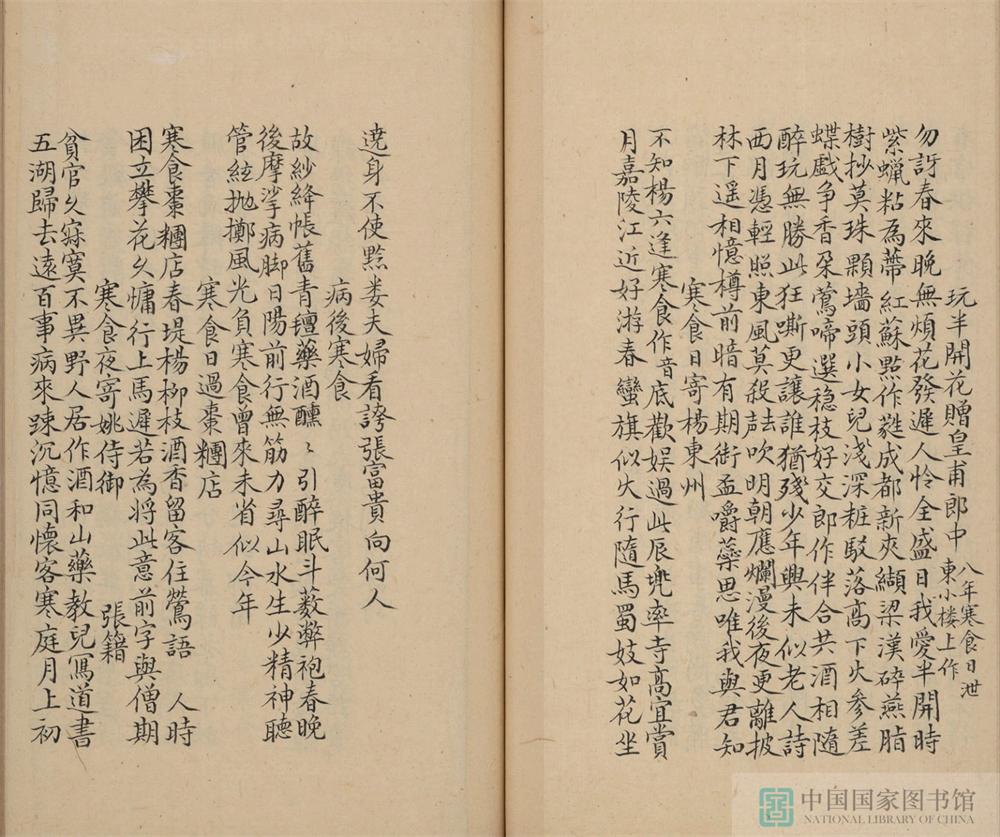 玩半開花贈皇甫郎中
八年寒食日泄
東小楼上作
勿訝春來晚無煩花發遲人怜全盛日我愛半開時
紫蝋粘為蔕紅蘇點作蕤成都新夾纈梁漢碎燕脂
樹抄莫珠顆墻頭小女兒淺深粧駁落高下火參差
蝶戯争香朶鶯啼選稳枝好交郎作伴合共酒相隨
醉玩無勝此狂嘶更讓誰猶殘少年興未似老人詩
西月憑輕照東風莫殺吹明朝應爛漫後夜更離披
林下遥相憶樽前暗有期銜盃嚼蘂思唯我與君知
寒食日寄楊東州
不知楊六逢寒食作音底歡娯過此辰兠率寺高宜賞
月嘉陵江近好游春蠻旗似火行隨馬蜀妓如花坐
遶身不使黔婁夫婦看誇張富貴向何人
病後寒食
故紗絳帳舊青氊藥酒醺〻引醉眠斗薮弊袍春晚
後摩挲病脚日陽前行無筋力尋山水生少精神聴
管絃抛擲風光負寒食曾來未省似今年
寒食日過棗糰店
寒食棗糰店春堤楊柳枝酒香留客住鶯語 人時
困立攀花久慵行上馬遲若為将此意前字與僧期
寒食夜寄姚侍御 張籍
貧官久寂寞不異野人居作酒和山藥教兒冩道書
五湖歸去遠百事病來踈沉憶同懷客寒庭月上初
中国国家图书馆
NATIONAL LIBRARY OF CHINA